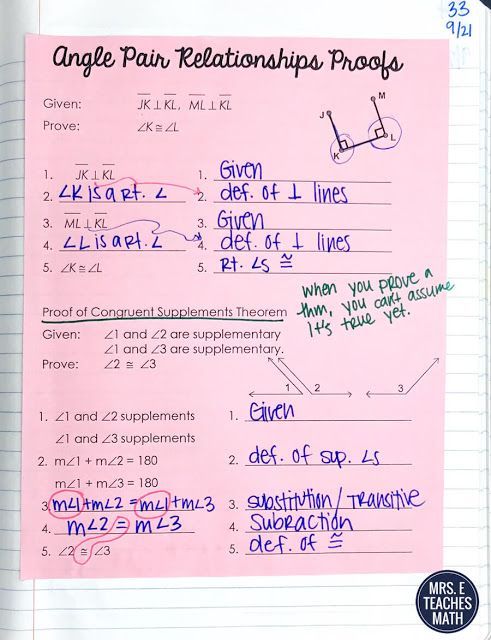 33
9/21
Angle Pair Relationships Proofs
Given: JK ⊥ KL, ML ⊥ KL
Prove: ∠K ≅ ∠L
J
M
K
L
1. JK ⊥ KL 1. Given
2. ∠K is a rt. ∠ 2. def. of ⊥ lines
3. ML ⊥ KL 3. Given
4. ∠L is a rt. ∠ 4. def. of ⊥ lines
5. ∠K ≅ ∠L 5. Rt. ∠s ≅
when you prove a
thm, you can't assume
it's true yet.
Proof of Congruent Supplements Theorem
Given: ∠1 and ∠2 are supplementary
∠1 and ∠3 are supplementary.
Prove: ∠2 ≅ ∠3
1 2 3
1. ∠1 and ∠2 supplements 1. Given
∠1 and ∠3 supplements
2. m∠1 + m∠2 = 180 2. def. of sup. ∠s
m∠1 + m∠3 = 180
3. m∠1 + m∠2 = m∠1 + m∠3 3. substitution / Transitive
4. m∠2 = m∠3 4. Subraction
5. ∠2 ≅ ∠3 5. def. of ≅
MRS. E
TEACHES
MATH